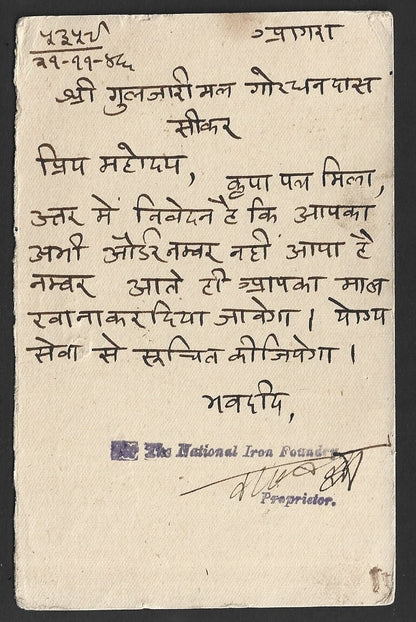 आगरा
२१-११-४६
श्री गुलजारीमल गोरधनदास
सीकर
प्रिय महोदय,
कृपा पत्र मिला,
उत्तर में निवेदन है कि आपका
अभी ऑर्डर नम्बर नहीं आया है
नम्बर आते ही आपका माल
रवाना कर दिया जावेगा । योग्य
सेवा से सूचित कीजियेगा ।
भवदीय,
The National Iron Foundry
Proprietor.